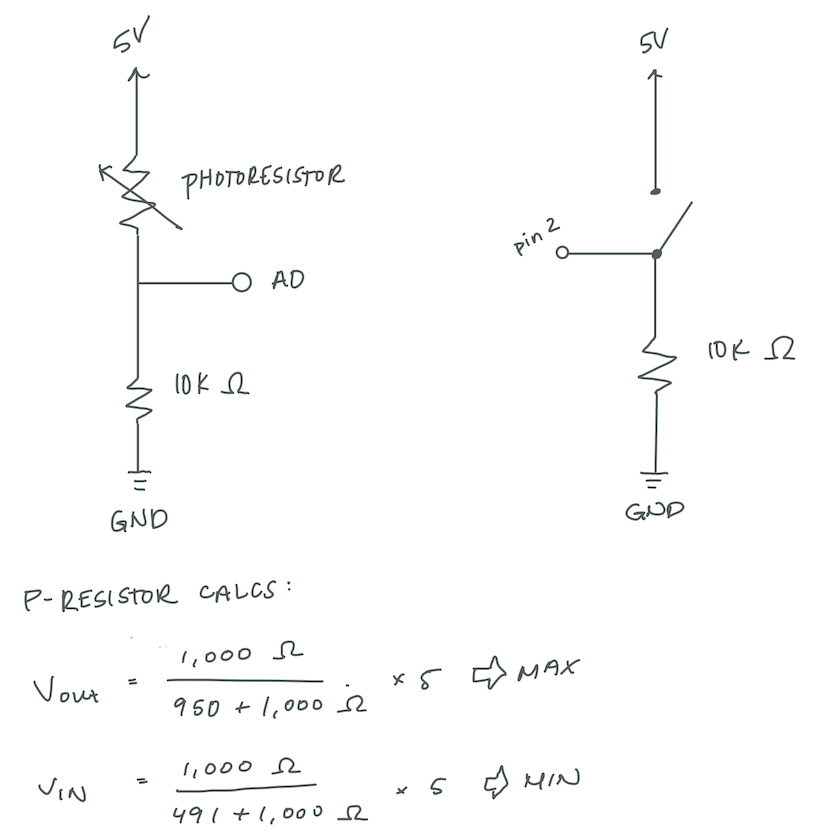 5V
PHOTORESISTOR
A0
10K Ω
GND
5V
pin 2
10K Ω
GND
P-RESISTOR CALCS:
Vout = 1,000 Ω / 950 + 1,000 Ω × 5 ⇨ MAX
VIN = 1,000 Ω / 491 + 1,000 Ω × 5 ⇨ MIN